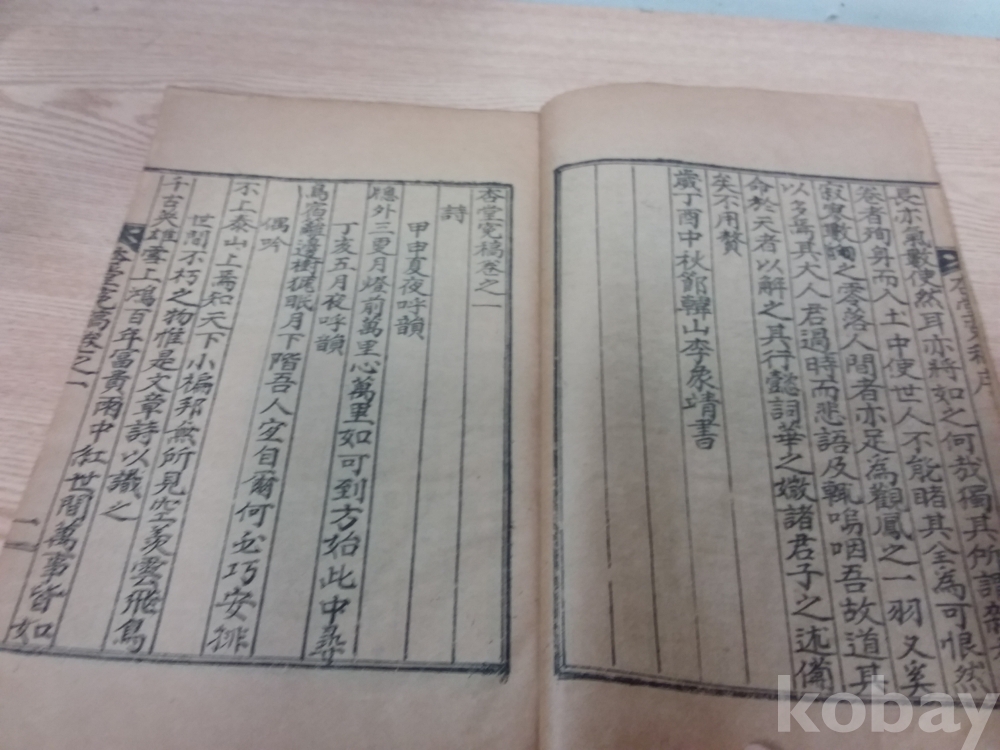 長亦氣數使然耳亦將如之何哉獨其所
巻者殉身而入土中使世人不能睹其全為可恨然
之零落人間者亦足為觀鳳之一羽又奚
以多為其大人君過時而悲語及輒嗚咽吾故道其
命於天者以解之其行懿詞華之媺諸君子之述備
矣不用贅
歲丁酉中秋節韓山李象靖書
杏堂寃稿卷之一
詩
甲申夏夜呼韻
窓外三更月燈前萬里心萬里如可到方始此中尋
丁亥五月夜呼韻
鳥宿離邊樹猧眠月下階吾人定自爾何必巧安排
偶吟
不上泰山上焉知天下小褊邦無所見空羨雲飛鳥
世間不朽之物惟是文章詩以識之
千古英雄雪上鴻百年富貴雨中紅世間萬事皆如
杏堂寃稿卷之一
一
kobay